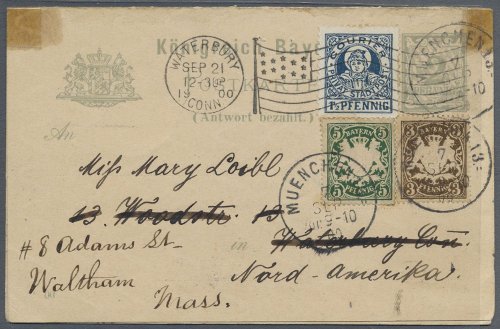 Königreich Bay
WATERBURY
SEP 21
12-30P
1900
CONN.
COURIER
STADT
1½ PFENNIG
POSTKART
(Antwort bezahlt.)
An
BAYERN
5 5
PFENNIG
BAYERN
3 3
PFENNIG
MUENCHEN
MUENCHEN
9-10
Miss Mary Loibl
13. Woodstr. 13
# 8 Adams St.
in Waterbury Con.
Waltham
Nord-Amerika.
Mass.